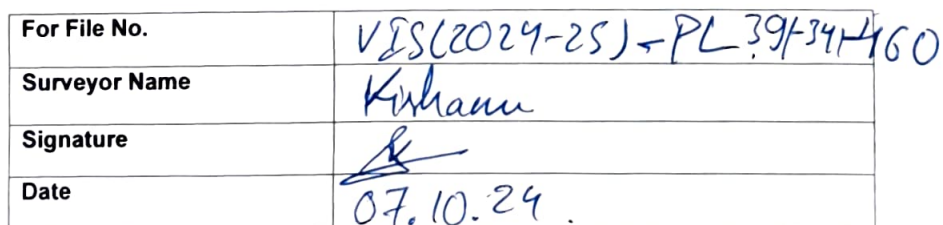 For File No. VIS(2024-25)-PL391-341-460
Surveyor Name Kishanu
Signature
Date 07.10.24.